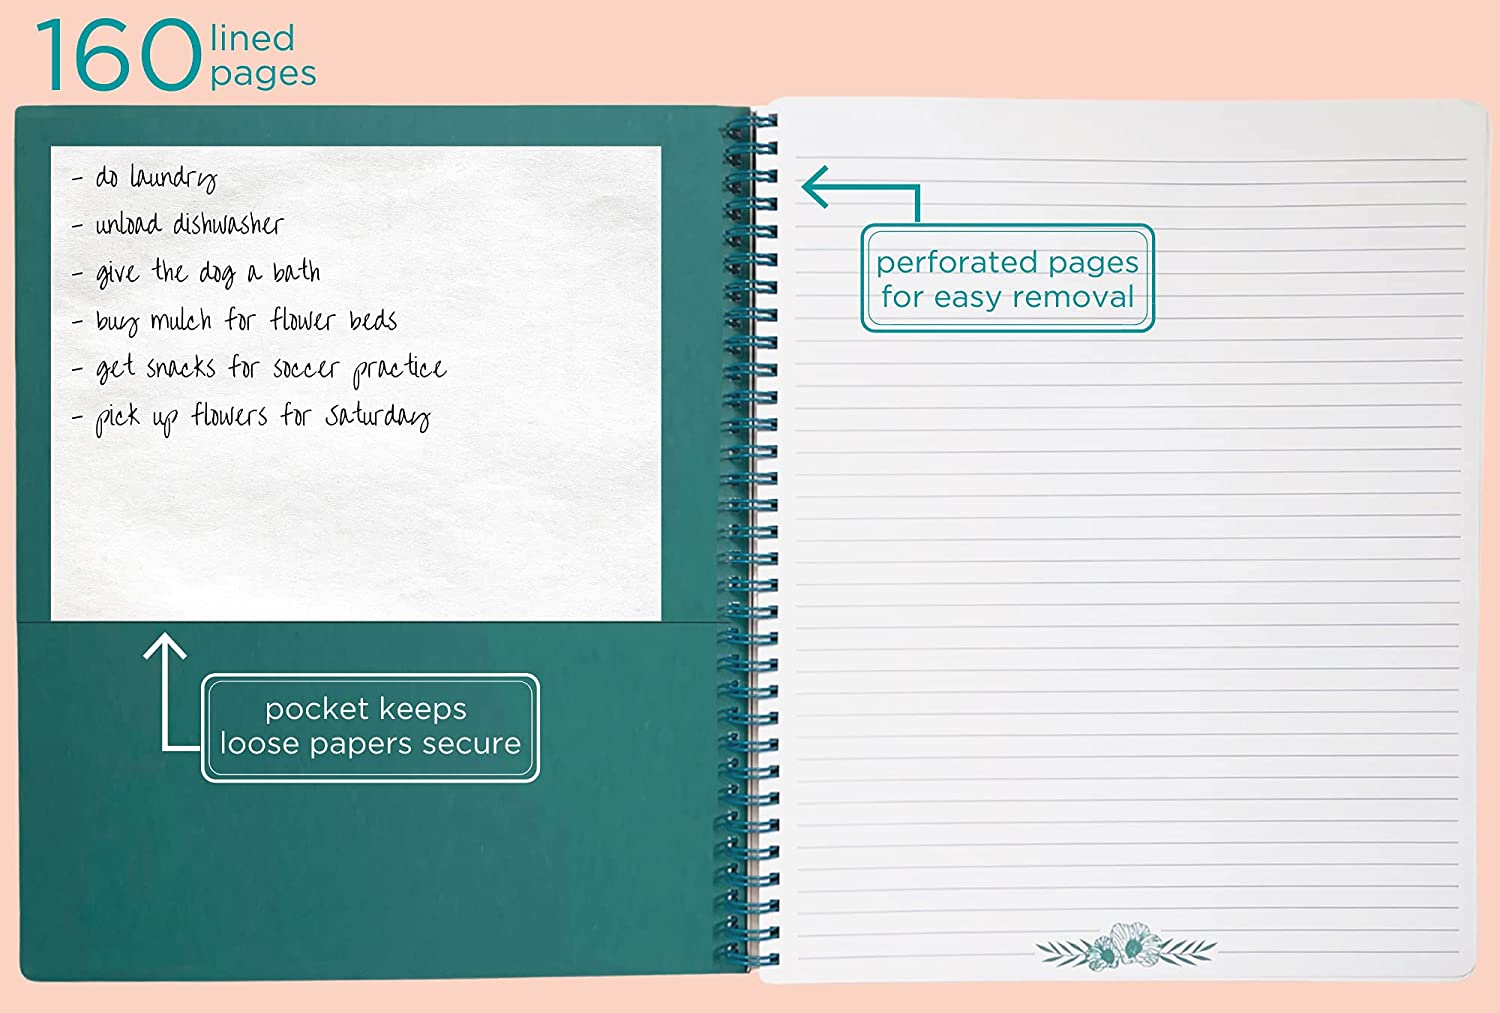 160 lined
pages
- do laundry
- unload dishwasher
- give the dog a bath
- buy mulch for flower beds
- get snacks for soccer practice
- pick up flowers for Saturday
perforated pages
for easy removal
pocket keeps
loose papers secure